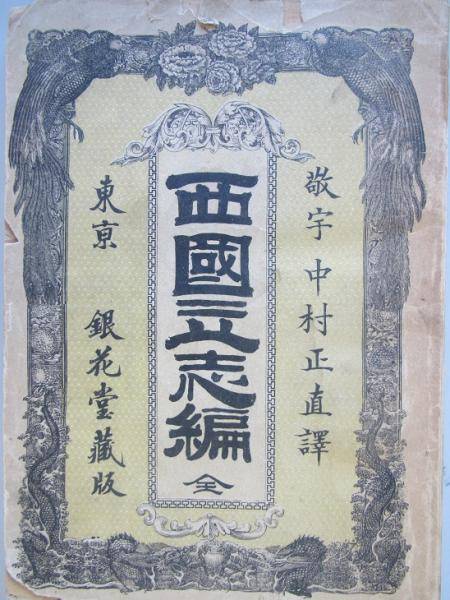 敬宇 中村正直譯
西國立志編 全
東亰 銀花堂藏版